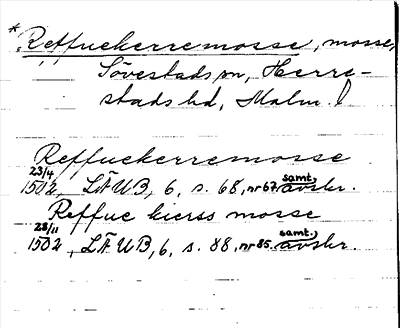 * Reffuekerremosse, mosse,
Sövestads sn, Herre-
stads hd, Malm. l
Reffuekerremosse
23/4 1502, LÄUB, 6, s. 68, nr 67. samt. avskr.
Reffue kierss mosse
28/11 1502, LÄUB, 6, s. 88, nr 85. samt. avskr.